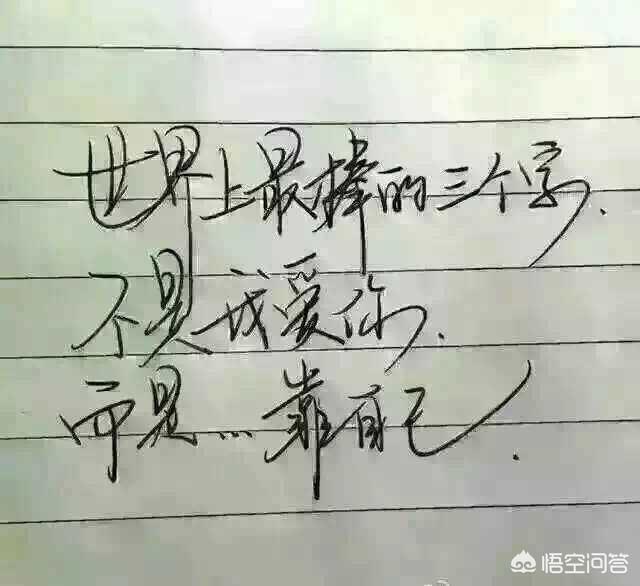 世界上最棒的三个字.
不是我爱你.
而是...靠自己.
悟空问答